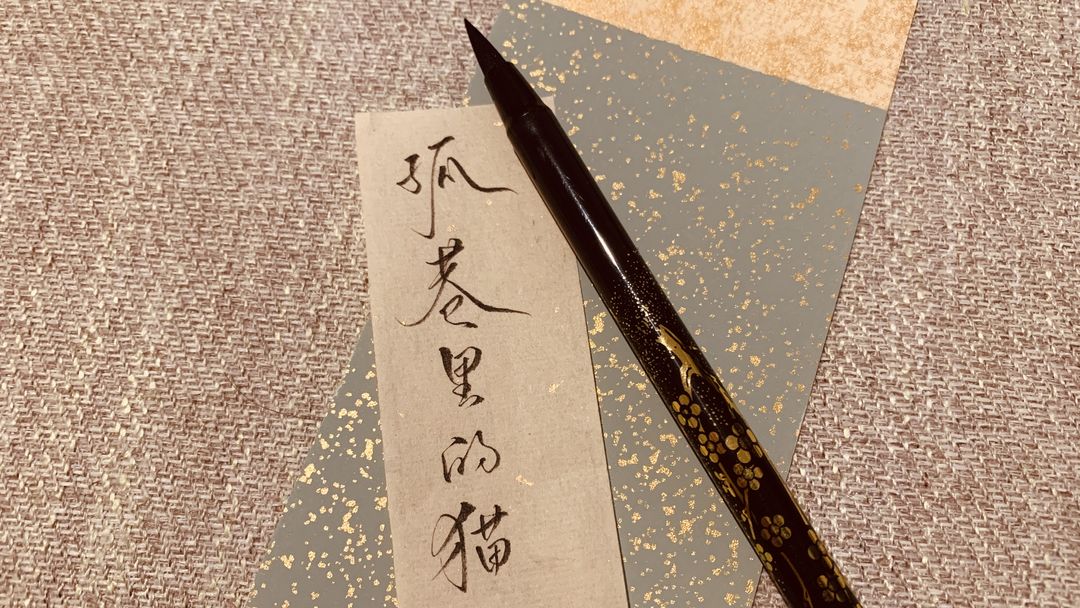 孤巷里的猫